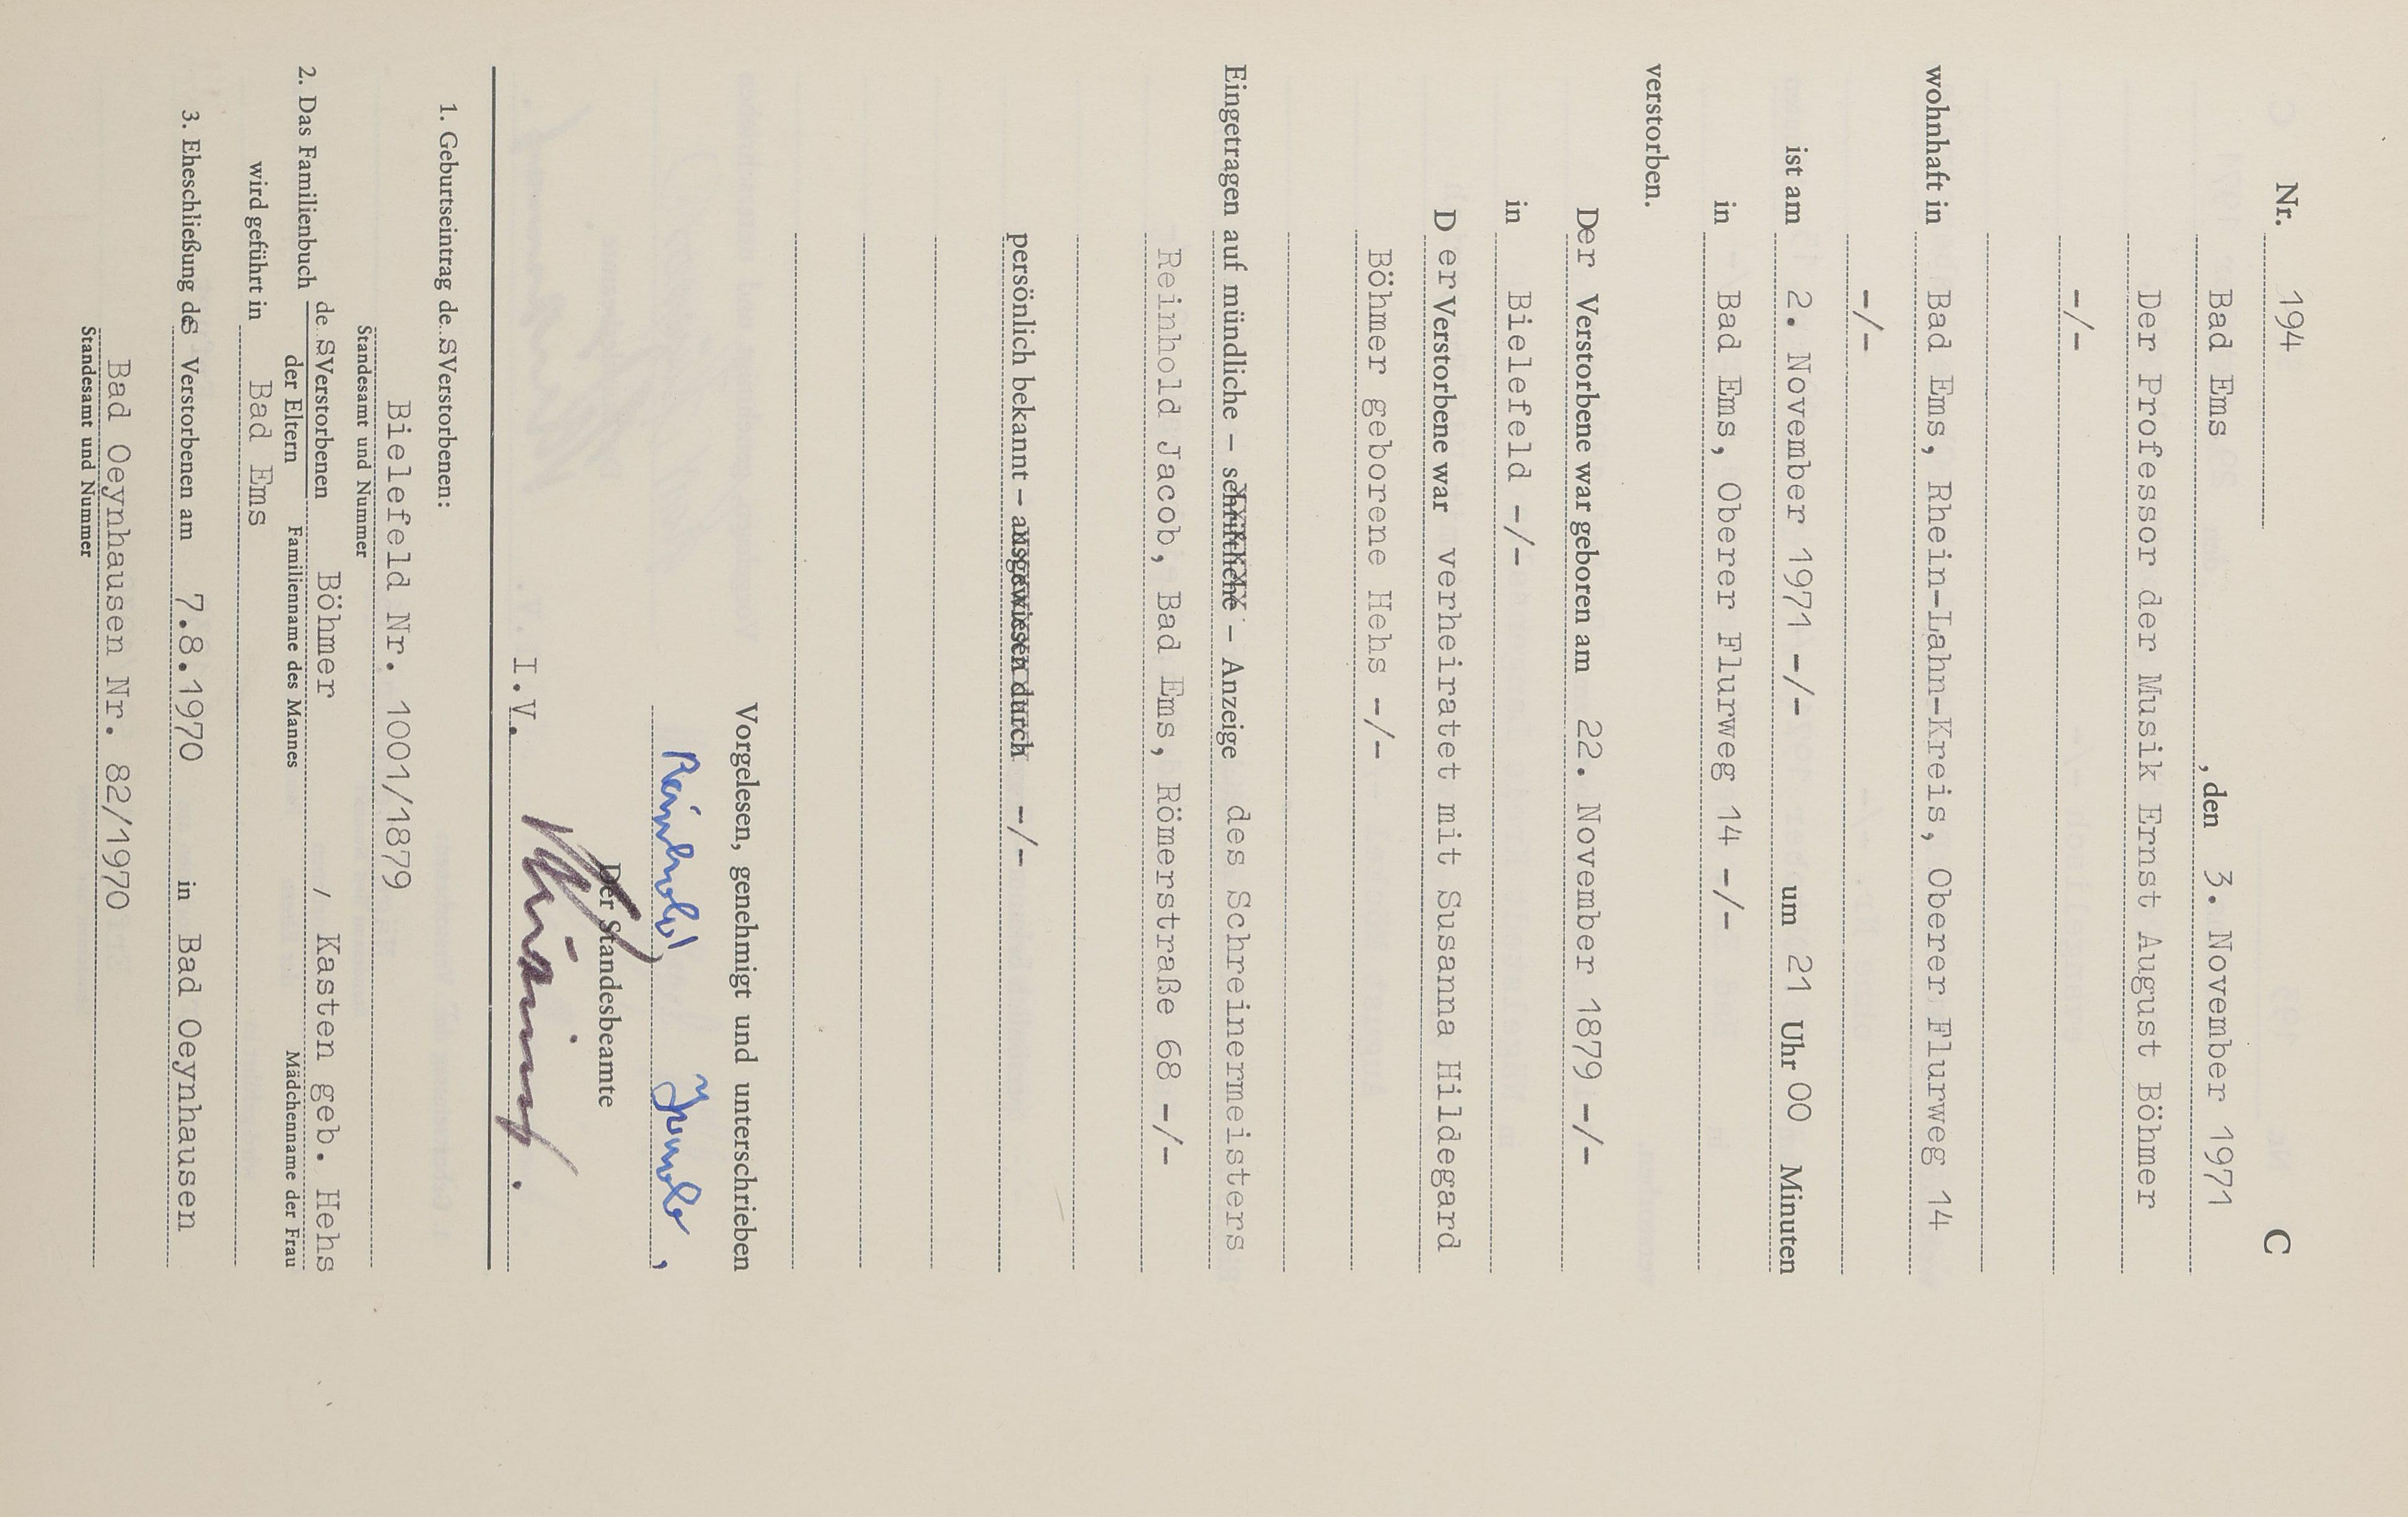 Nr. 194 C
Bad Ems , den 3. November 1971
Der Professor der Musik Ernst August Böhmer
-/-
wohnhaft in Bad Ems, Rhein-Lahn-Kreis, Oberer Flurweg 14
-/-
ist am 2. November 1971 -/- um 21 Uhr 00 Minuten
in Bad Ems, Oberer Flurweg 14 -/-
verstorben.
Der Verstorbene war geboren am 22. November 1879 -/-
in Bielefeld -/-
D er Verstorbene war verheiratet mit Susanna Hildegard
Böhmer geborene Hehs -/-
Eingetragen auf mündliche – schriftliche – Anzeige des Schreinermeisters
Reinhold Jacob, Bad Ems, Römerstraße 68 -/-
persönlich bekannt – ausgewiesen durch -/-
Vorgelesen, genehmigt und unterschrieben
Reinhold Jacob,
Der Standesbeamte
I.V.
1. Geburtseintrag de.s Verstorbenen:
Bielefeld Nr. 1001/1879
Standesamt und Nummer
2. Das Familienbuch de.s Verstorbenen Böhmer / Kasten geb. Hehs
der Eltern Familienname des Mannes Mädchenname der Frau
wird geführt in Bad Ems
3. Eheschließung des Verstorbenen am 7.8.1970 in Bad Oeynhausen
Bad Oeynhausen Nr. 82/1970
Standesamt und Nummer